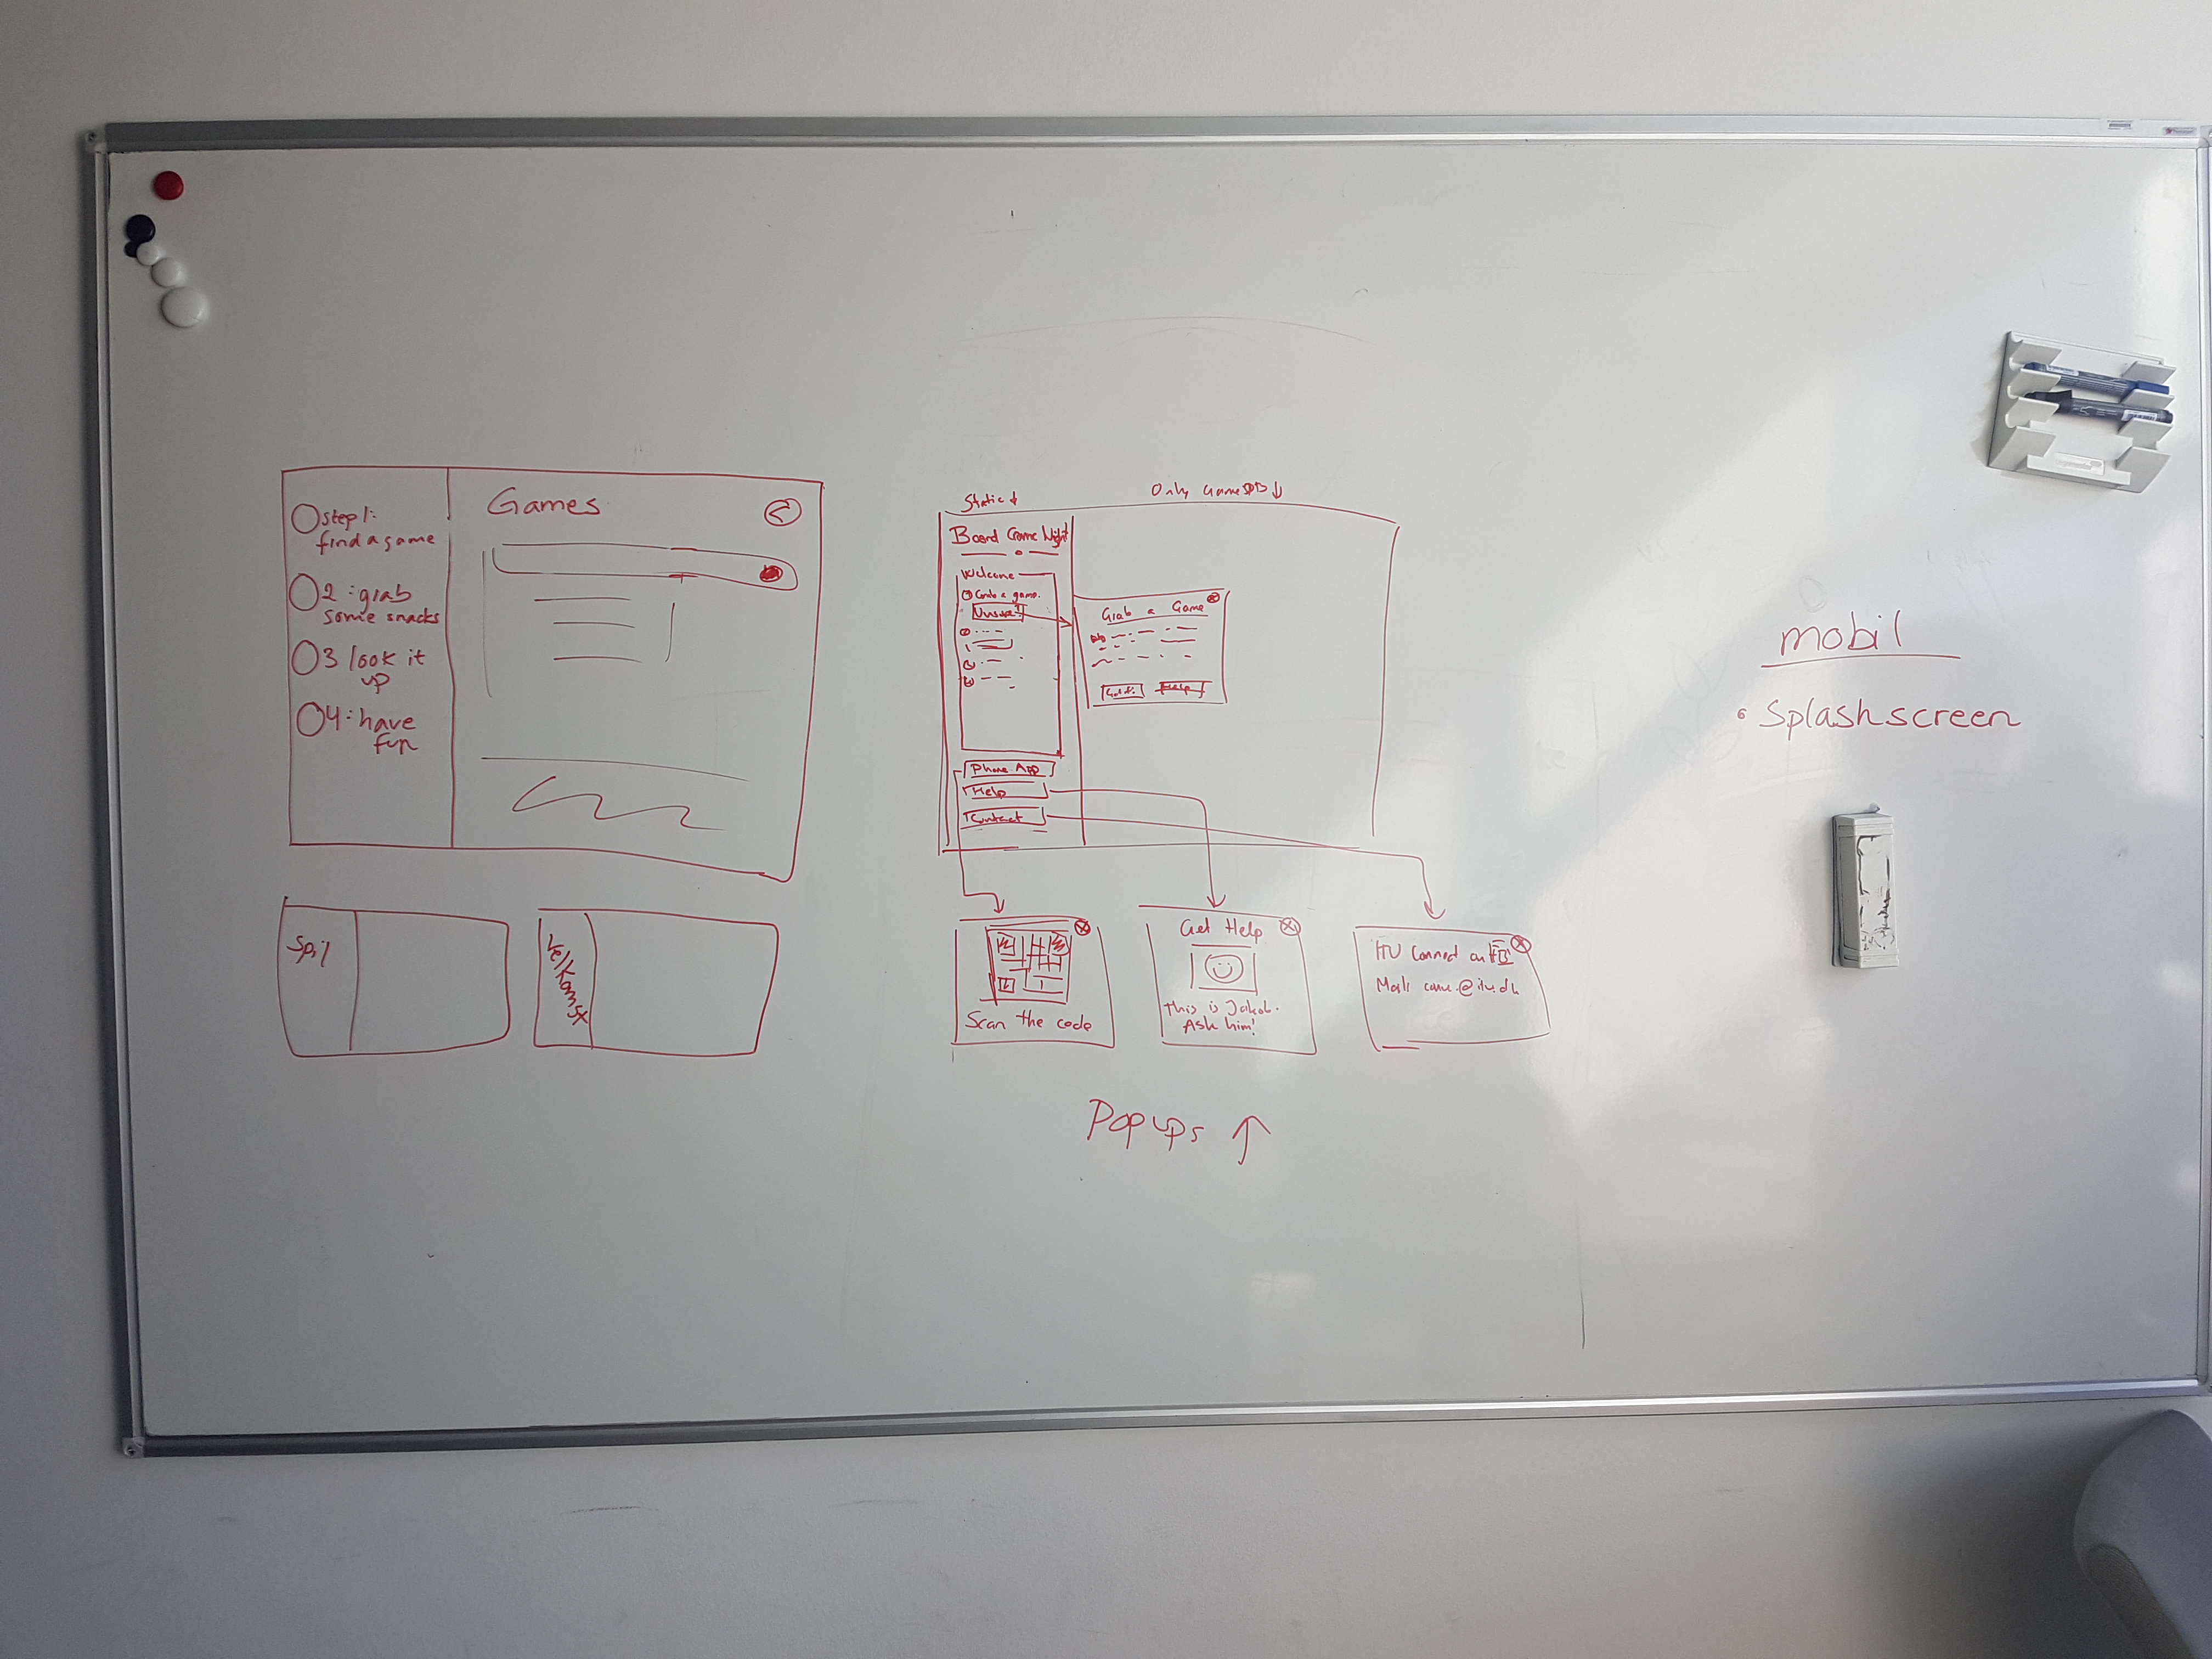 Games
step 1:
find a game
2: grab
some snacks
3 look it
up
4: have
fun
Spil
Velkomst
Static ↓
Only GamesDB ↓
Board Game Night
Welcome
Grab a game.
Unsure?
Grab a Game
Help
Phone App
Help
Contact
Scan the code
Get Help
This is Jakob.
Ask him!
ITU Connect on FB
Mail @itu.dk
Popups ↑
mobil
• Splashscreen